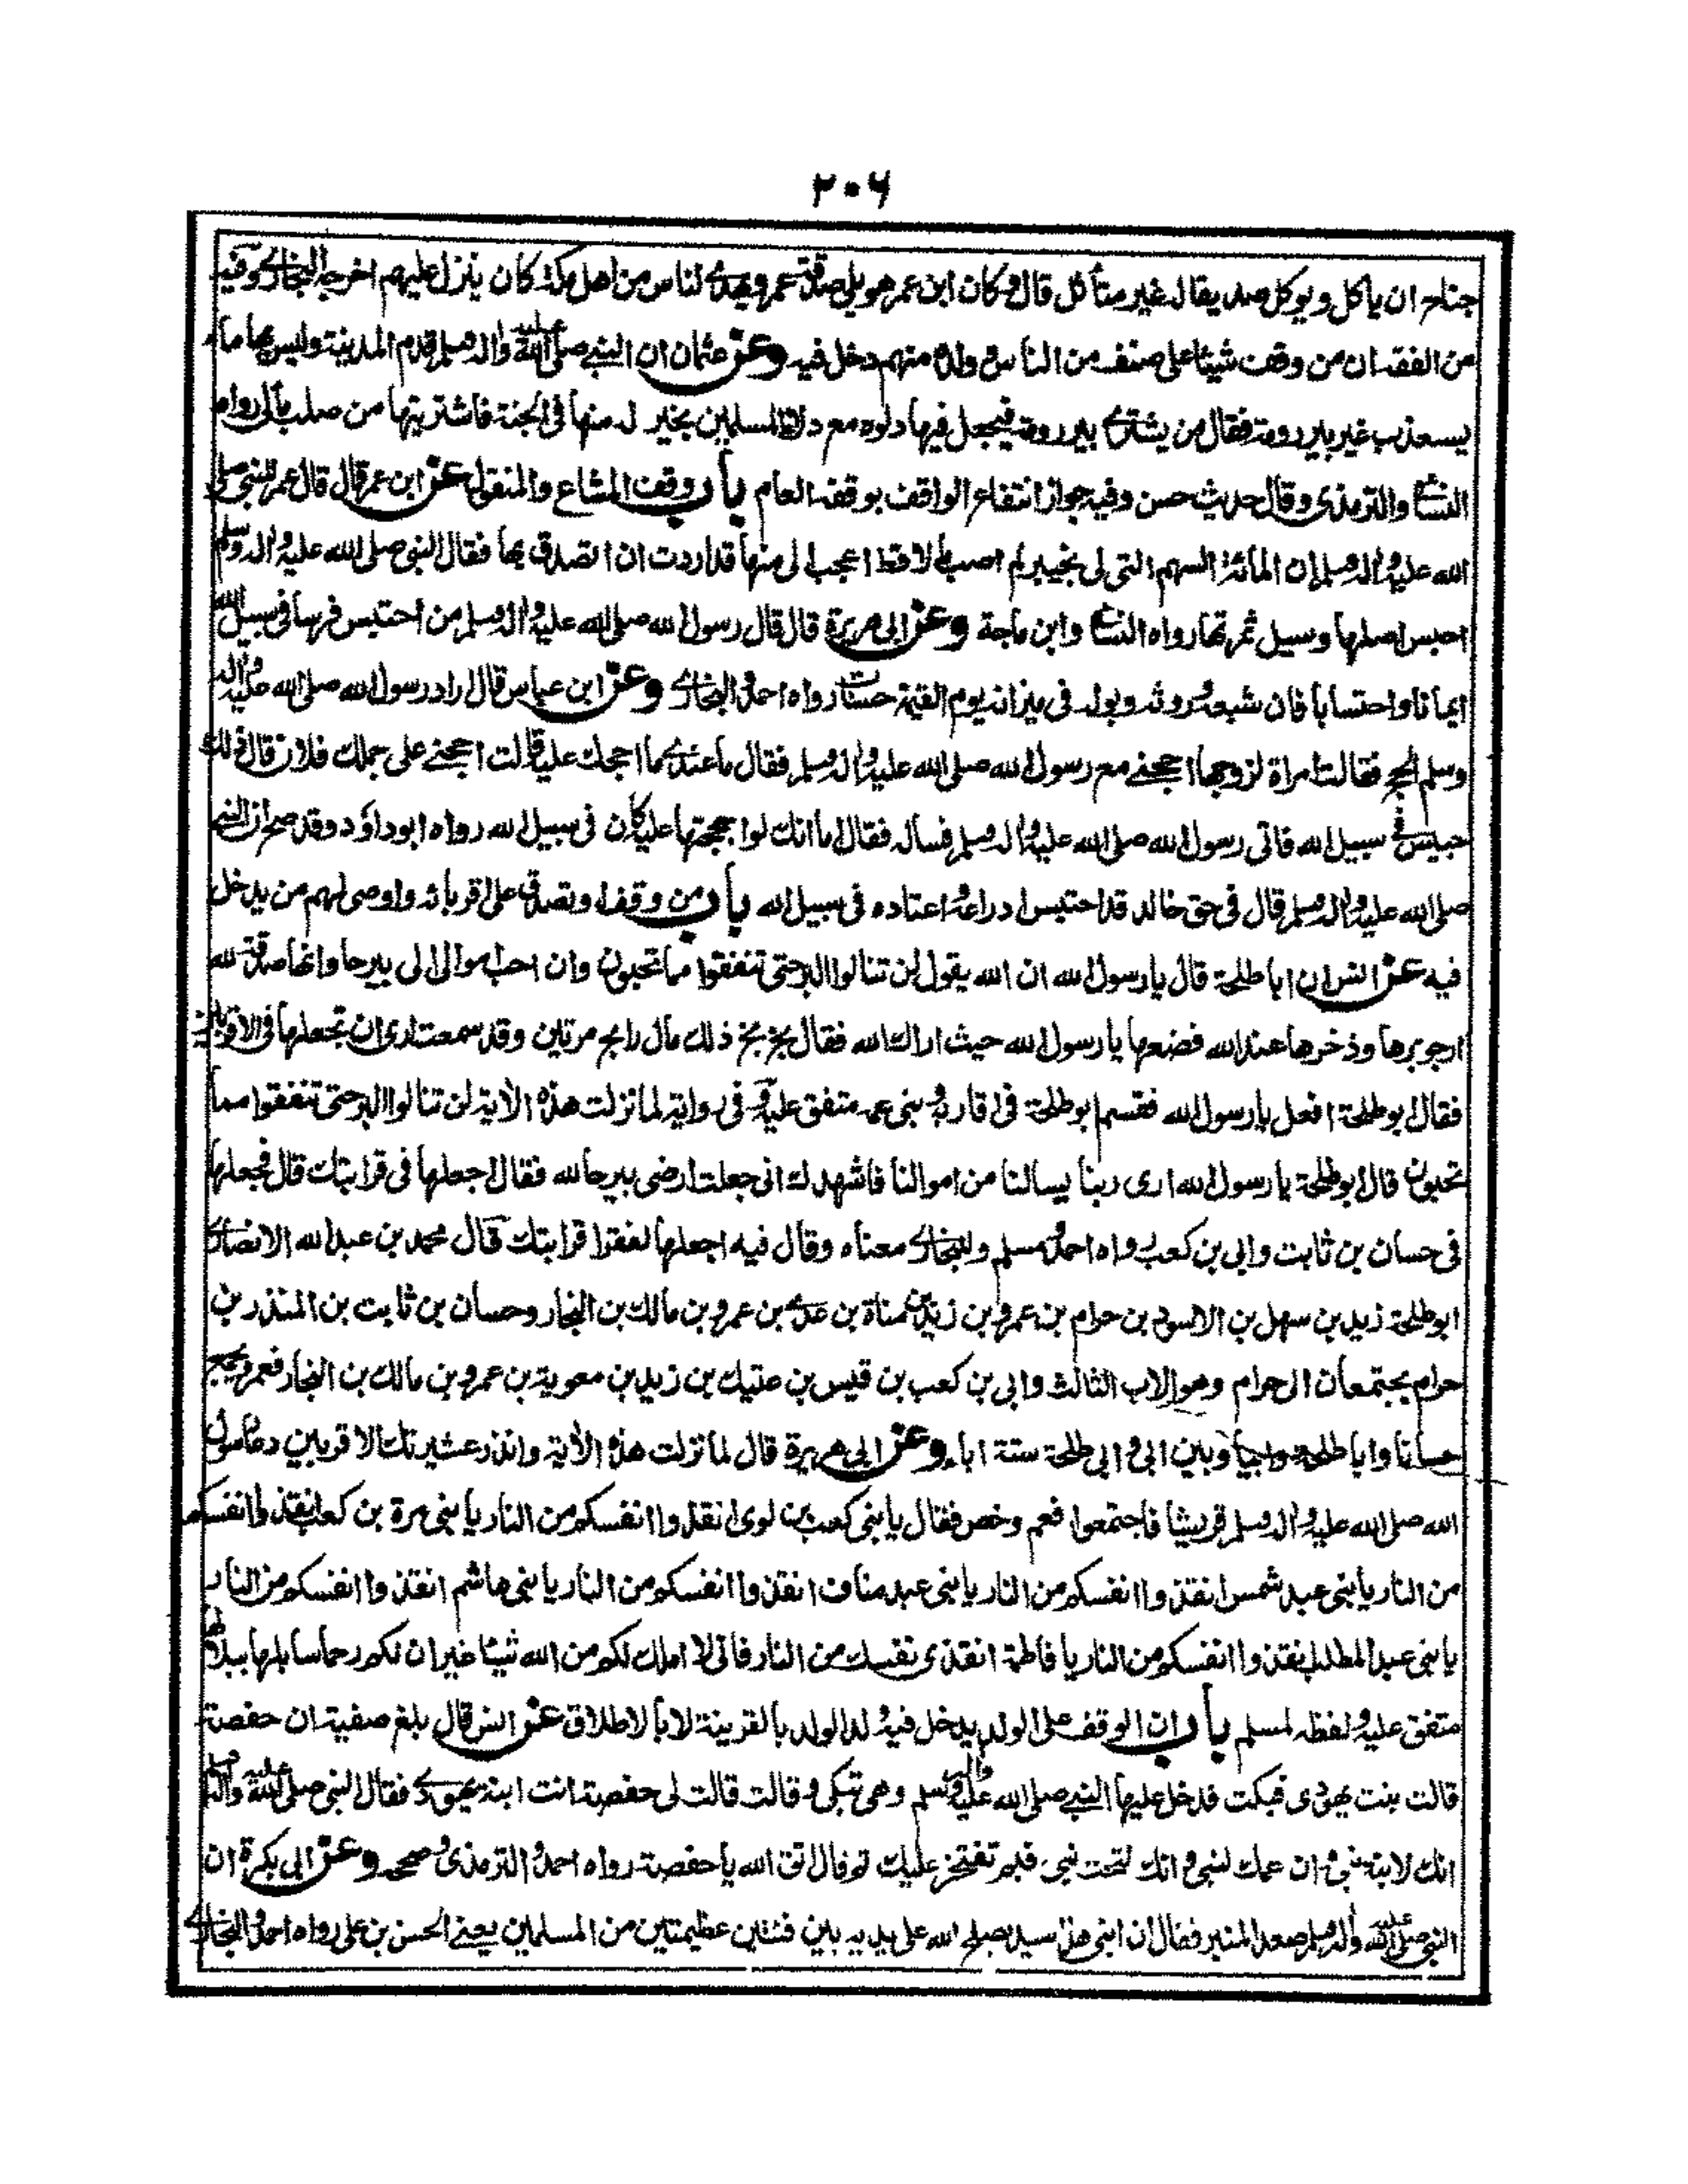 ٢٠٦
جناح ان ياكل ويوكل صديقاله غير متأثل قال وكان ابن عمر هو يلي صدقة عمر ويهدى لناس من اهل مكة كان ينزل عليهم اخرجه البخارى وفيه
من الفقه ان من وقف شيئا على صنف من الناس وولده منهم دخل فيه وعن عثمان ان النبي صلى الله عليه واله وسلم قدم المدينة وليس بها ماء
يستعذب غير بير رومة فقال من يشترى بير رومة فيجعل فيها دلوه مع دلاء المسلمين بخير له منها فى الجنة فاشتريتها من صلب مالى رواه
النسائى والترمذى وقال حديث حسن وفيه جواز انتفاع الواقف بوقفه العام باب وقف المشاع والمنقول عن ابن عمر قال قال عمر للنبي صلى
الله عليه واله وسلم ان المائة السهم التى لى بخيبر لم اصب مالا قط اعجب الى منها قد اردت ان اتصدق بها فقال النبى صلى الله عليه واله وسلم
احبس اصلها وسبل ثمرتها رواه النسائى وابن ماجة وعن ابى هريرة قال قال رسول الله صلى الله عليه واله وسلم من احتبس فرسا فى سبيل الله
ايمانا واحتسابا فان شبعه وروثه وبوله فى ميزانه يوم القيمة حسنات رواه احمد والبخارى وعن ابن عباس قال اراد رسول الله صلى الله عليه واله
وسلم الحج فقالت امراة لزوجها احججنے مع رسول الله صلى الله عليه واله وسلم فقال ما عندى ما احجك عليه قالت احججنے على جملك فلان قال ذلك
حبيس فى سبيل الله فاتى رسول الله صلى الله عليه واله وسلم فساله فقال اما انك لو احججتها عليه كان فى سبيل الله رواه ابوداؤد وقد صح ان النبي
صلى الله عليه واله وسلم قال فى حق خالد قد احتبس ادراعه واعتاده فى سبيل الله باب من وقف او تصدق على اقربائه او اوصى لهم من يدخل
فيه عن انس ان ابا طلحة قال يا رسول الله ان الله يقول لن تنالوا البر حتى تنفقوا مما تحبون وان احب اموالى الى بيرحا وانها صدقة لله
ارجو برها وذخرها عند الله فضعها يا رسول الله حيث اراك الله فقال بخ بخ ذلك مال رابح مرتين وقد سمعت ارى ان تجعلها فى الاقربين
فقال ابوطلحة افعل يا رسول الله فقسمها ابوطلحة فى اقاربه وبنى عمه متفق عليه وفى رواية لما نزلت هذه الآية لن تنالوا البر حتى تنفقوا مما
تحبون قال ابوطلحة يا رسول الله ارى ربنا يسالنا من اموالنا فاشهدك انى جعلت ارضى بيرحا لله فقال اجعلها فى قرابتك قال فجعلها
فى حسان بن ثابت وابى بن كعب رواه احمد ومسلم وللبخارى معناه وقال فيه اجعلها لفقراء قرابتك قال محمد بن عبد الله الانصارى
ابوطلحة زيد بن سهل بن الاسود بن حرام بن عمرو بن زيد بن مناة بن عدى بن عمرو بن مالك بن النجار وحسان بن ثابت بن المنذر بن
حرام يجتمعان الى حرام وهو الاب الثالث وابى بن كعب بن قيس بن عتيك بن زيد بن معوية بن عمرو بن مالك بن النجار فعمرو يجمع
حسانا وابا طلحة وابيا وبين ابى وابى طلحة ستة اباء وعن ابى هريرة قال لما نزلت هذه الآية وانذر عشيرتك الاقربين دعا رسول
الله صلى الله عليه واله وسلم قريشا فاجتمعوا فعم وخص فقال يا بنى كعب بن لوى انقذوا انفسكم من النار يا بنى مرة بن كعب انقذوا انفسكم
من النار يا بنى عبد شمس انقذوا انفسكم من النار يا بنى عبد مناف انقذوا انفسكم من النار يا بنى هاشم انقذوا انفسكم من النار
يا بنى عبد المطلب انقذوا انفسكم من النار يا فاطمة انقذى نفسك من النار فانى لا املك لكم من الله شيئا غير ان لكم رحما سابلها ببلالها
متفق عليه ولفظه لمسلم باب ان الوقف على الولد يدخل فيه ولد الولد بالقرينة لا بالاطلاق عن انس قال بلغ صفية ان حفصة
قالت بنت يهودى فبكت فدخل عليها النبي صلى الله عليه واله وسلم وهى تبكى وقالت قالت لى حفصة انت ابنة يهودى فقال النبى صلى الله عليه واله وسلم
انك لابنة نبى وان عمك لنبى وانك لتحت نبى فبم تفتخر عليك ثم قال اتق الله يا حفصة رواه احمد والترمذى وصححه وعن ابى بكرة ان
النبى صلى الله عليه واله وسلم صعد المنبر فقال ان ابنى هذا سيد يصلح الله على يديه بين فئتين عظيمتين من المسلمين يعنے الحسن بن على رواه احمد والبخارى